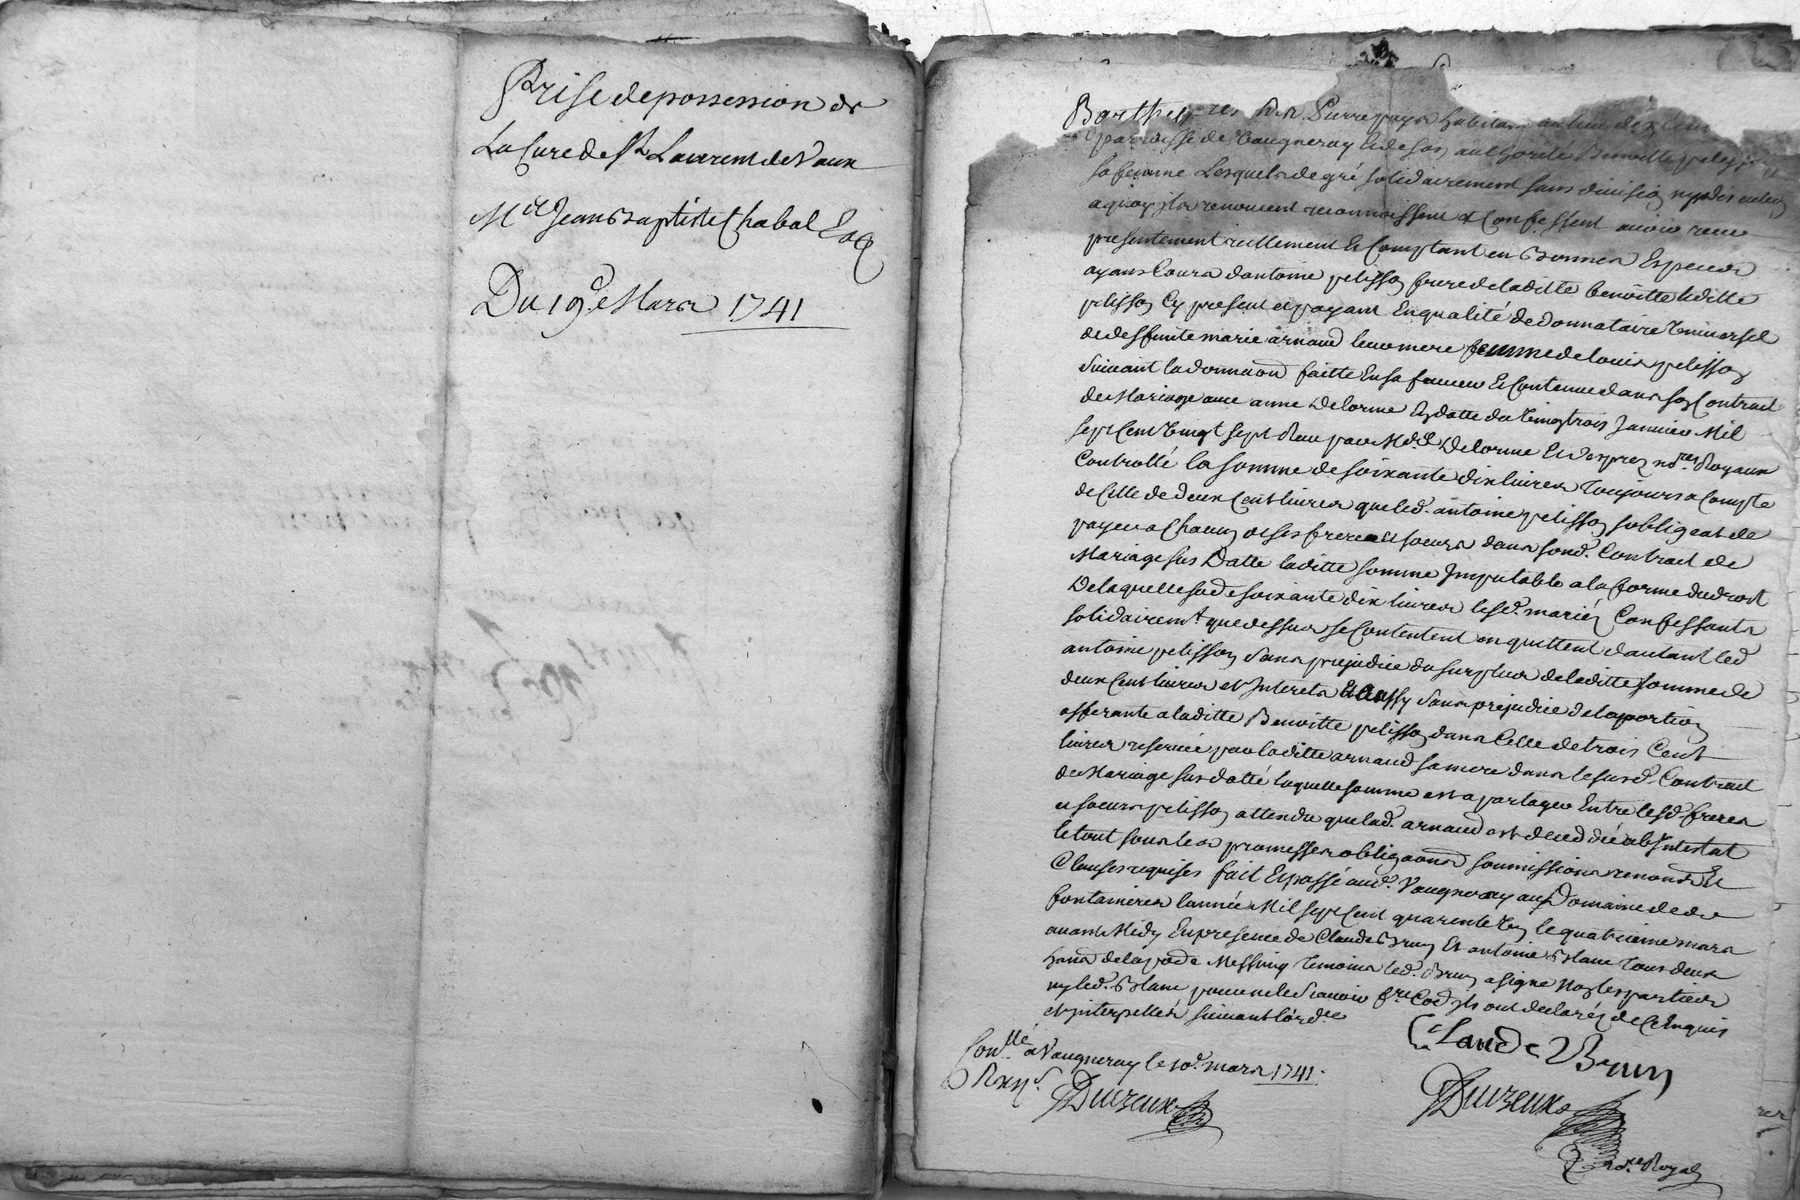 Prise de possession de
La Cure de St Laurent de Vaux
Mre Jean Baptiste Chabal
Du 19e Mars 1741
Pierre habitant au lieu de
parroisse de Vaugneray et de son authorité Benoitte
sa femme Lesquels de gré solidairement sans division ny
a quoy ils renoncent reconnoissent et Confessent avoir receu
presentement reellement et Comptant en Bonnes Especes
ayans Cours dantoine pelisson frere de laditte benoitte leditte
pelisson Cy present et payant En qualité de donnataire Universel
de deffunte marie arnaud leur mere femme de louis pelisson
Suivant la donnaon faitte En sa faveur Et Contenue dans son Contract
de Mariage avec anne Delorme En datte du Vingt trois Janvier Mil
sept Cent Vingt sept Receu par Delorme Et nores Royaux
Controllé la somme de soixante dix livres Toujours a Compte
de Celle de deux Cent livres que led. antoine pelisson sobligeat de
payer a Chacun de ses freres et soeurs dans sond. Contract de
Mariage sus Datté laditte somme Imputable a la forme du droit
De laquelle sode soixante dix livres lesd. mariez Confessants
solidairemt que dessus se Contentent en quittent dautant led
antoine pelisson Sans prejudice du surplus de laditte somme de
deux Cent livres et Interets Et Aussy Sans prejudice de la portion
afferante a laditte Benoitte pelisson dans Celle de trois Cent
livres reservée par laditte arnaud sa mere dans le susd. Contract
de Mariage sus datté laquelle somme est a partager Entre lesd. freres
et soeurs pelisson attendu que lad. arnaud est decedée ab Intestat
le tout sous les promesses obligaons soumissions renons Et
Clauses requises fait Et passé aud. Vaugneray au Domaine de
fontanieres lannée Mil sept Cent quarente Un le quatrieme mars
avant Midy En presence de Claude Brun Et antoine Blanc Tous deux
habts de la pade Messimy Temoins led. Brun a signe Non les parties
ny led. Blanc pour ne le Scavoir f.re Co. ils ont declarés de Ce Enquis
et interpellés suivant l'ordce
Claude Brun
Conllé a Vaugneray le 10e mars 1741.
Duvzeux
Duvzeux
nore Royal